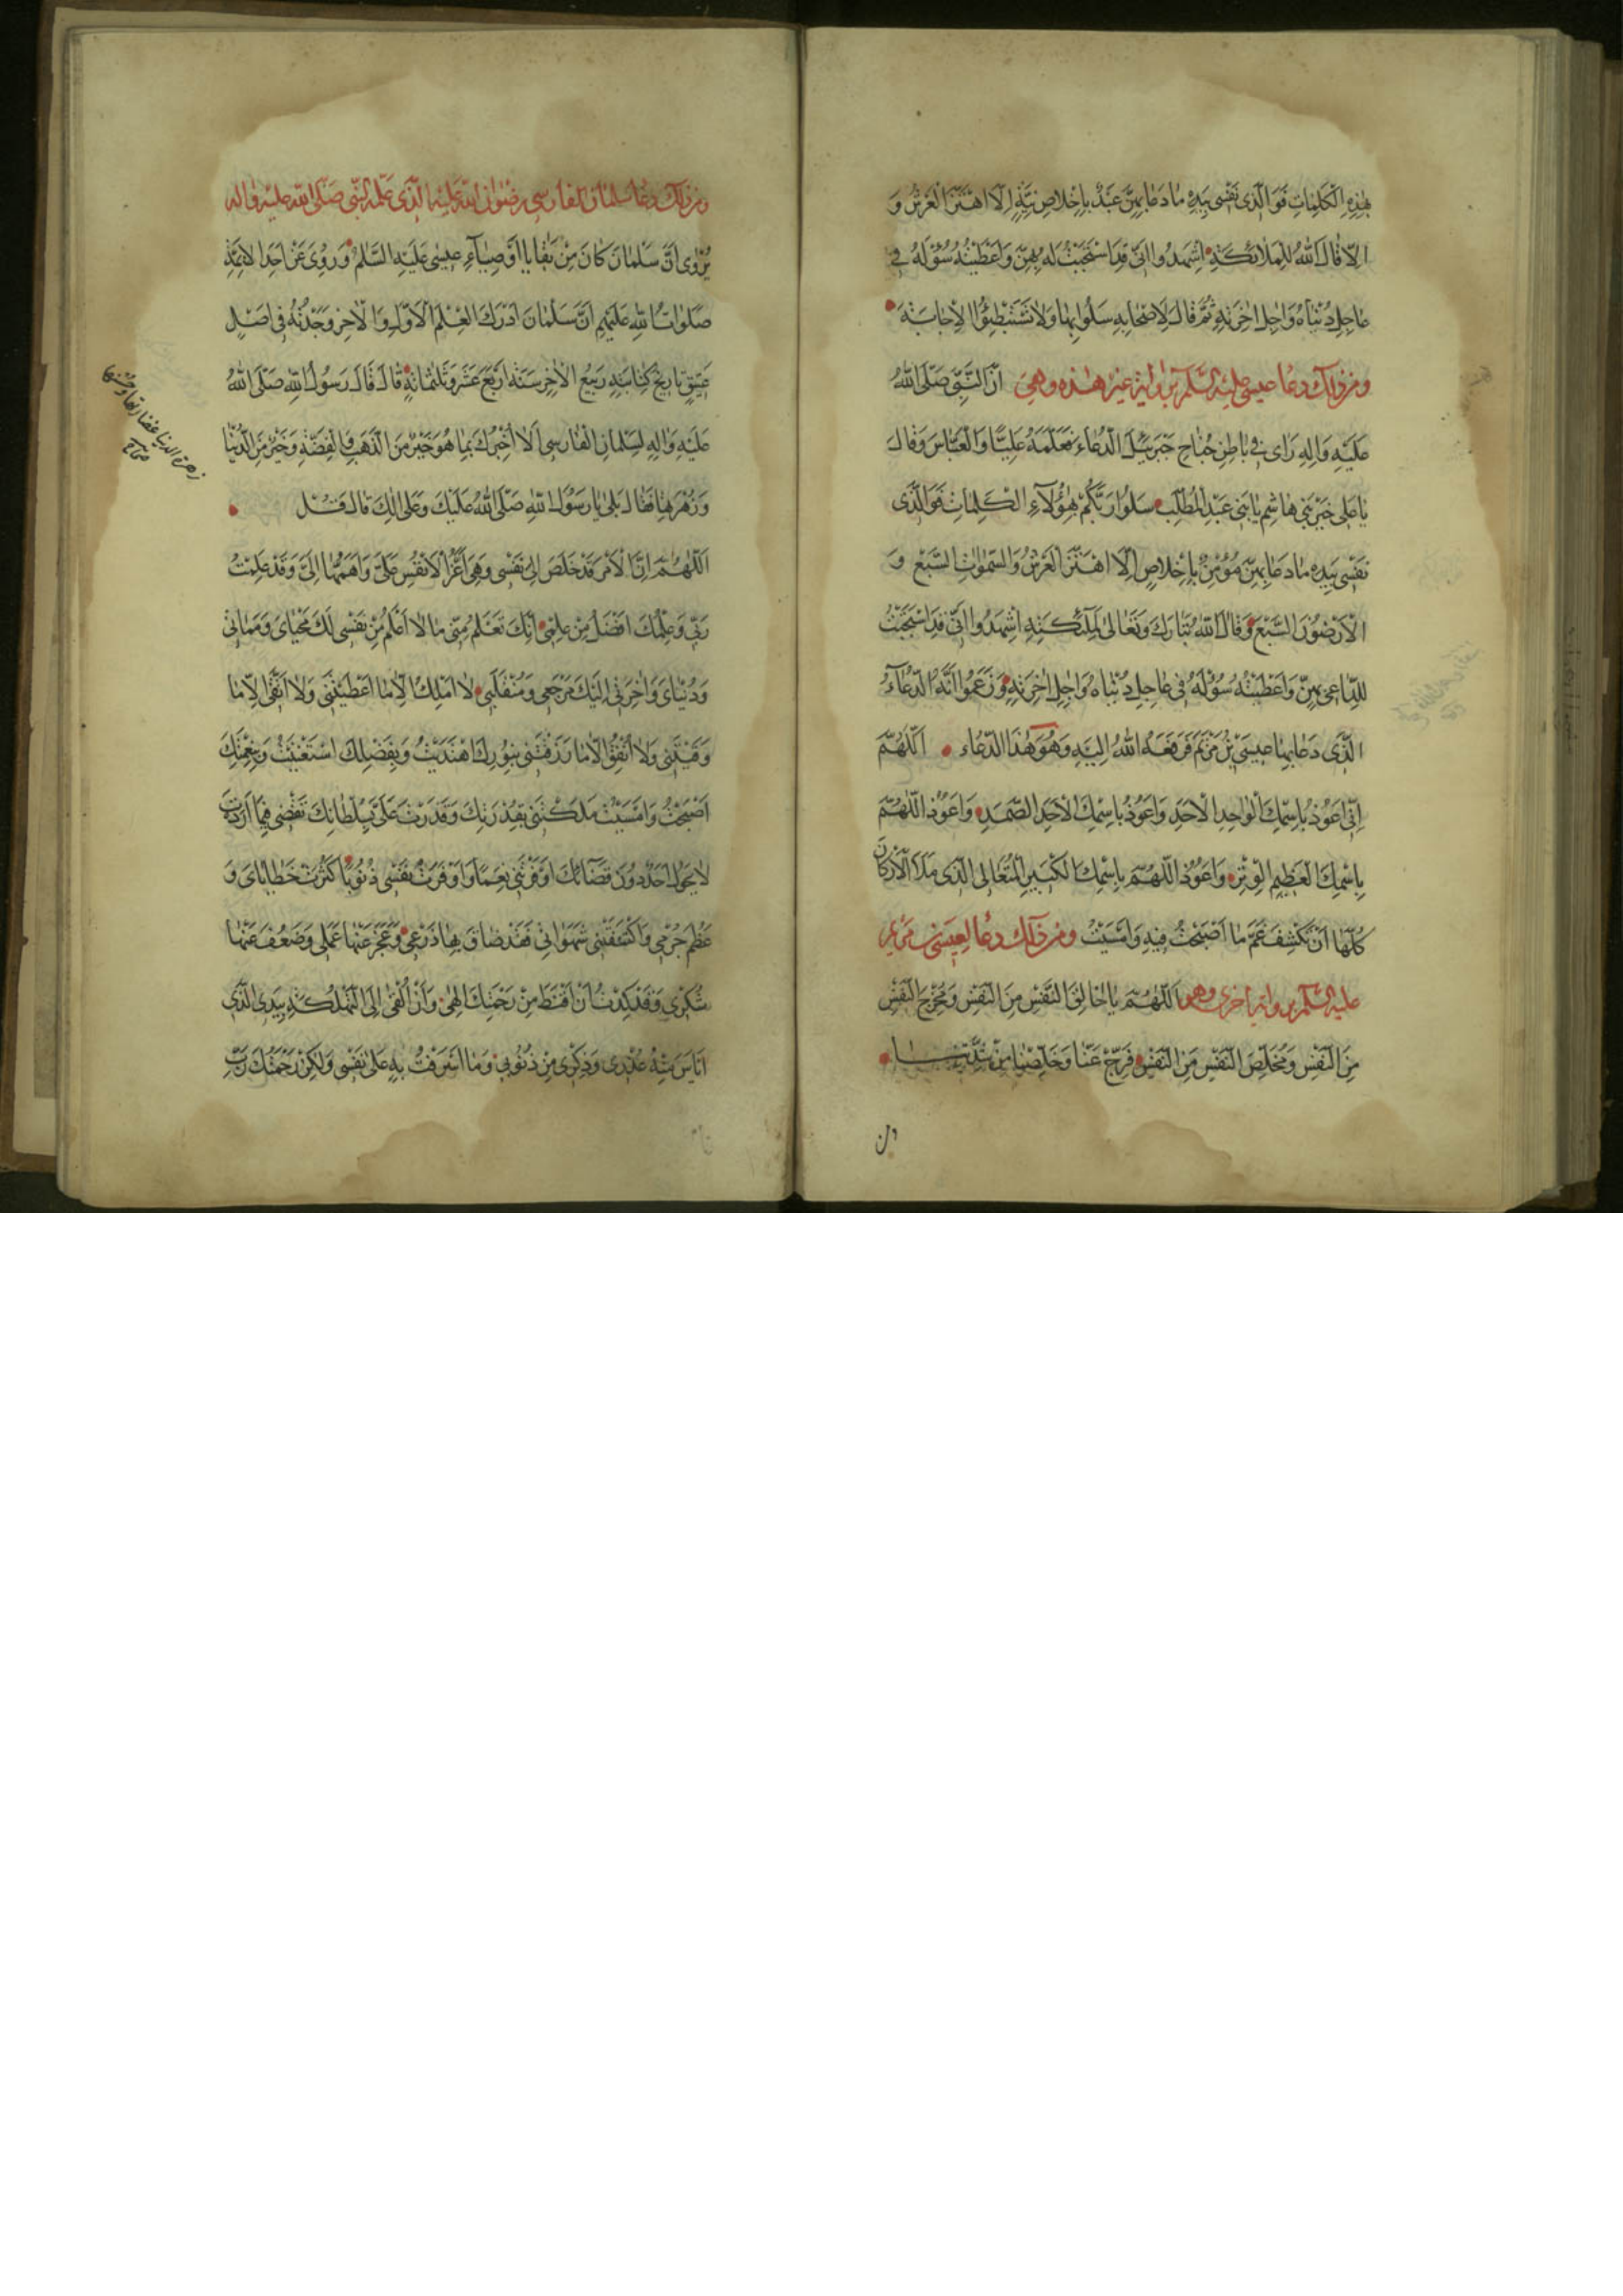 بِهٰذِهِ الْكَلِمَاتِ فَوَالَّذِى نَفْسِى بِيَدِهِ مَا دَعَا بِهِنَّ عَبْدٌ بِاِخْلَاصِ نِيَّةٍ اِلَّا اهْتَزَّ الْعَرْشُ وَ
اِلَّا قَالَ اللّٰهُ لِلْمَلَائِكَةِ اشْهَدُوا اَنِّى قَدِ اسْتَجَبْتُ لَهُ بِهِنَّ وَاَعْطَيْتُهُ سُؤْلَهُ فِى
عَاجِلِ دُنْيَاهُ وَاٰجِلِ اٰخِرَتِهِ ثُمَّ قَالَ لِاَصْحَابِهِ سَلُوا بِهَا وَلَا تَسْتَبْطِئُوا الْاِجَابَةَ
ومن ذلك دعا عيسى عليه السلم برواية غير هذه وهى اَنَّ النَّبِىَّ صَلَّى اللّٰهُ
عَلَيْهِ وَاٰلِهِ رَاٰى فِى بَاطِنِ جُنَاحِ جَبْرَئِيلَ الدُّعَاءَ فَعَلَّمَهُ عَلِيًّا وَالْعَبَّاسَ وَقَالَ
يَا عَلِى خَيْرَ بَنِى هَاشِمٍ يَا بَنِى عَبْدِ الْمُطَّلِبِ سَلُوا رَبَّكُمْ بِهٰؤُلَاءِ الْكَلِمَاتِ فَوَالَّذِى
نَفْسِى بِيَدِهِ مَا دَعَا بِهِنَّ مُؤْمِنٌ بِاِخْلَاصٍ اِلَّا اهْتَزَّ الْعَرْشُ وَالسَّمٰوَاتُ السَّبْعُ وَ
الْاَرَضُونَ السَّبْعُ وَقَالَ اللّٰهُ تَبَارَكَ وَتَعَالٰى لِمَلٰئِكَتِهِ اشْهَدُوا اَنِّى قَدِ اسْتَجَبْتُ
لِلدَّاعِى بِهِنَّ وَاَعْطَيْتُهُ سُؤْلَهُ فِى عَاجِلِ دُنْيَاهُ وَاٰجِلِ اٰخِرَتِهِ وَزَعَمُوا اَنَّهُ الدُّعَآءُ
الَّذِى دَعَا بِهَا عِيسَى بْنُ مَرْيَمَ فَرَفَعَهُ اللّٰهُ اِلَيْهِ وَهُوَ هٰذَا الدُّعَاء اَللّٰهُمَّ
اِنِّى اَعُوذُ بِاسْمِكَ الْوَاحِدِ الْاَحَدِ وَاَعُوذُ بِاسْمِكَ الْاَحَدِ الصَّمَدِ وَاَعُوذُ اللّٰهُمَّ
بِاسْمِكَ الْعَظِيمِ الْوِتْرِ وَاَعُوذُ اللّٰهُمَّ بِاسْمِكَ الْكَبِيرِ الْمُتَعَالِى الَّذِى مَلَاَ الْاَرْكَانَ
كُلَّهَا اَنْ تَكْشِفَ غَمَّ مَا اَصْبَحْتُ فِيهِ وَاَمْسَيْتُ ومن ذلك دعا لعيسى بن مريم
عليه السلم برواية اخرى وهو اَللّٰهُمَّ يَا خَالِقَ النَّفْسِ مِنَ النَّفْسِ وَمُخْرِجَ النَّفْسِ
مِنَ النَّفْسِ وَمُخَلِّصَ النَّفْسِ مِنَ النَّفْسِ فَرِّجْ عَنَّا وَخَلِّصْنَا مِنْ شِدَّتِنَا
ومن ذلك دعا سلمان الفارسى رضوان الله عليه الذى علمه النبى صلى الله عليه واله
يُرْوٰى اَنَّ سَلْمَانَ كَانَ مِنْ بَقَايَا اَوْصِيَآءِ عِيسٰى عَلَيْهِ السَّلٰمُ وَرُوِىَ عَنْ اَحَدِ الْاَئِمَّةِ
صَلَوَاتُ اللّٰهِ عَلَيْهِمْ اَنَّ سَلْمَانَ اَدْرَكَ الْعِلْمَ الْاَوَّلَ وَالْاٰخِرَ وَجَدْتُهُ فِى اَصْلٍ
عَتِيقٍ تَارِيخُ كِتَابَتِهِ رَبِيعُ الْاٰخِرِ سَنَةَ اَرْبَعَ عَشْرَ وَثَلٰثَمِائَةٍ قَالَ قَالَ رَسُولُ اللّٰهِ صَلَّى اللّٰهُ
عَلَيْهِ وَاٰلِهِ لِسَلْمَانَ الْفَارِسِى اَلَا اُخْبِرُكَ بِمَا هُوَ خَيْرٌ مِنَ الذَّهَبِ وَالْفِضَّةِ وَخَيْرٌ مِنَ الدُّنْيَا
وَزَهْرَتِهَا فَقَالَ بَلٰى يَا رَسُولَ اللّٰهِ صَلَّى اللّٰهُ عَلَيْكَ وَعَلٰى اٰلِكَ قَالَ فَقُلْ
اَللّٰهُمَّ اِنَّ الْاَمْرَ قَدْ خَلَصَ اِلٰى نَفْسِى وَهِىَ اَعَزُّ الْاَنْفُسِ عَلَىَّ وَاَهَمُّهَا اِلَىَّ وَقَدْ عَلِمْتُ
رَبِّى وَعِلْمُكَ اَفْضَلُ مِنْ عِلْمِى اَنَّكَ تَعْلَمُ مِنِّى مَا لَا اَعْلَمُ مِنْ نَفْسِى لَكَ مَحْيَاىَ وَمَمَاتِى
وَدُنْيَاىَ وَاٰخِرَتِى اِلَيْكَ مَرْجِعِى وَمُنْقَلَبِى لَا اَمْلِكُ اِلَّا مَا اَعْطَيْتَنِى وَلَا اَتَّقِى اِلَّا مَا
وَقَيْتَنِى وَلَا اُنْفِقُ اِلَّا مَا رَزَقْتَنِى بِنُورِكَ اهْتَدَيْتُ وَبِفَضْلِكَ اسْتَغْنَيْتُ وَبِنِعْمَتِكَ
اَصْبَحْتُ وَاَمْسَيْتُ مَلَكْتَنِى بِقُدْرَتِكَ وَقَدَرْتَ عَلَىَّ بِسُلْطَانِكَ تَقْضِى فِيمَا اَرَدْتَ
لَا يَحُولُ اَحَدٌ دُونَ قَضَآئِكَ اَوْقَرْتَنِى نِعَمًا وَاَوْقَرْتُ نَفْسِى ذُنُوبًا كَثُرَتْ خَطَايَاىَ وَ
عَظُمَ جُرْمِى وَاكْتَنَفَتْنِى شَهَوَاتِى فَقَدْ ضَاقَ بِهَا ذَرْعِى وَعَجَزَ عَنْهَا عَمَلِى وَضَعُفَ عَنْهَا
شُكْرِى وَقَدْ كِدْتُ اَنْ اَقْنَطَ مِنْ رَحْمَتِكَ اِلٰهِى وَاَنْ اُلْقِىَ اِلَى التَّهْلُكَةِ بِيَدِى الَّذِى
اَيْاَسَ مِنْهُ عُذْرِى وَذِكْرِى مِنْ ذُنُوبِى وَمَا اَسْرَفْتُ بِهِ عَلٰى نَفْسِى وَلٰكِنْ رَحْمَتَكَ رَبِّ
زهرة الدنيا غضارتها وحسنها
صحاح